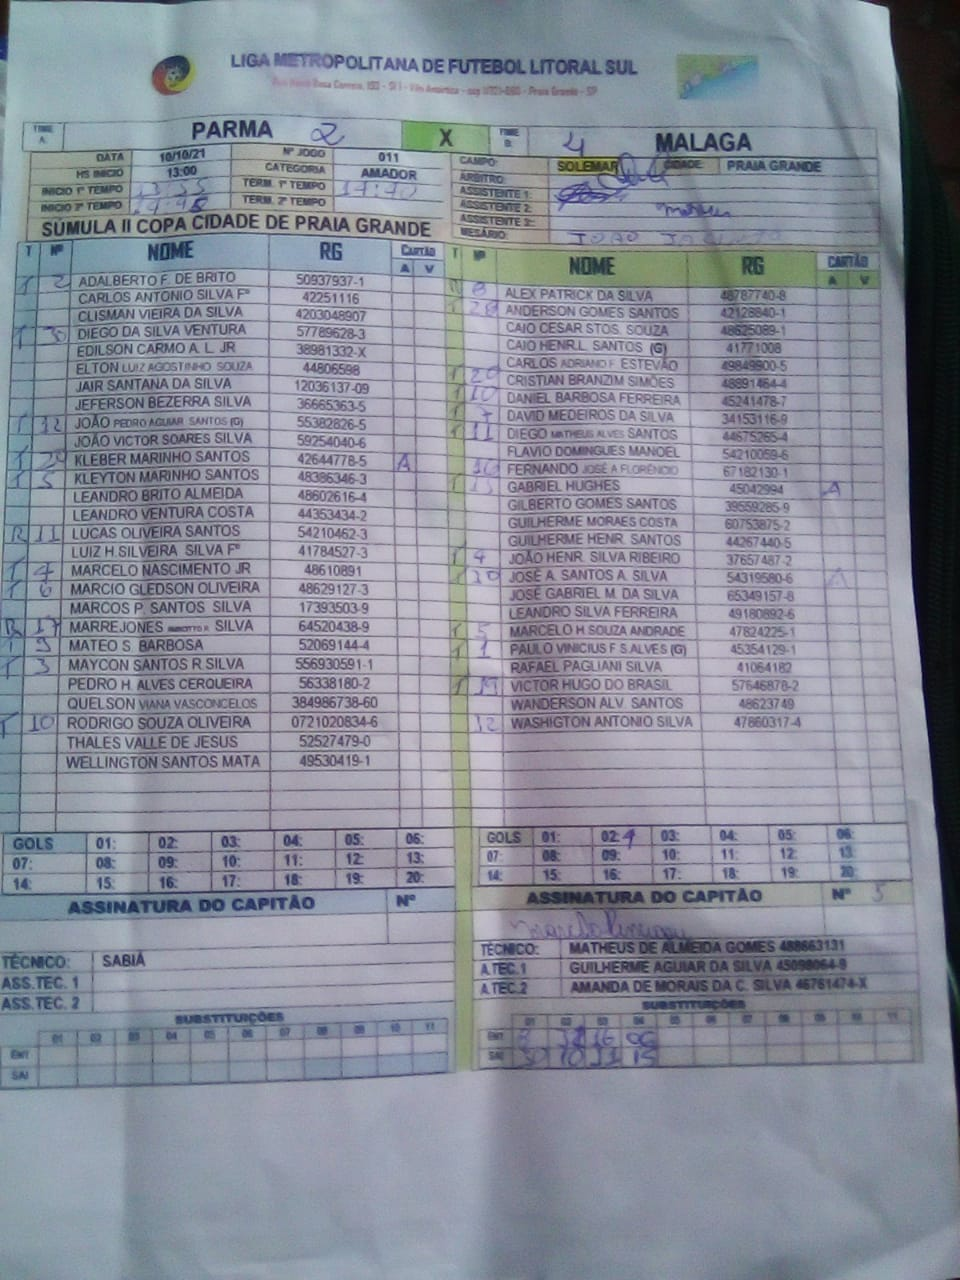 LIGA METROPOLITANA DE FUTEBOL LITORAL SUL
TIME A: PARMA 2 X TIME B: 4 MALAGA
DATA 10/10/21 Nº JOGO 011 CAMPO: SOLEMAR CIDADE: PRAIA GRANDE
HS INICIO 13:00 CATEGORIA AMADOR ARBITRO:
INICIO 1º TEMPO TERM. 1º TEMPO ASSISTENTE 1:
INICIO 2º TEMPO TERM. 2º TEMPO ASSISTENTE 2:
ASSISTENTE 3:
MESÁRIO: JOAO
SÚMULA II COPA CIDADE DE PRAIA GRANDE
T Nº NOME RG CARTÃO A V
T 2 ADALBERTO F. DE BRITO 50937937-1
CARLOS ANTONIO SILVA Fº 42251116
CLISMAN VIEIRA DA SILVA 4203048907
T 30 DIEGO DA SILVA VENTURA 57789628-3
EDILSON CARMO A. L. JR 38981332-X
ELTON LUIZ AGOSTINHO SOUZA 44806598
JAIR SANTANA DA SILVA 12036137-09
JEFERSON BEZERRA SILVA 36665363-5
T 12 JOÃO PEDRO AGUIAR SANTOS (G) 55382826-5
JOÃO VICTOR SOARES SILVA 59254040-6
T KLEBER MARINHO SANTOS 42644778-5 A
T 5 KLEYTON MARINHO SANTOS 48386346-3
LEANDRO BRITO ALMEIDA 48602616-4
LEANDRO VENTURA COSTA 44353434-2
R 11 LUCAS OLIVEIRA SANTOS 54210462-3
LUIZ H.SILVEIRA SILVA Fº 41784527-3
T 4 MARCELO NASCIMENTO JR 48610891
T 6 MARCIO GLEDSON OLIVEIRA 48629127-3
MARCOS P. SANTOS SILVA 17393503-9
R 17 MARREJONES SILVA 64520438-9
T 9 MATEO S. BARBOSA 52069144-4
T 3 MAYCON SANTOS R.SILVA 556930591-1
PEDRO H. ALVES CERQUEIRA 56338180-2
QUELSON VIANA VASCONCELOS 384986738-60
T 10 RODRIGO SOUZA OLIVEIRA 0721020834-6
THALES VALLE DE JESUS 52527479-0
WELLINGTON SANTOS MATA 49530419-1
GOLS 01: 02: 03: 04: 05: 06:
07: 08: 09: 10: 11: 12: 13:
14: 15: 16: 17: 18: 19: 20:
ASSINATURA DO CAPITÃO Nº
TÉCNICO: SABIÁ
ASS.TEC. 1
ASS.TEC. 2
SUBSTITUIÇÕES
01 02 03 04 05 06 07 08 09 10 11
ENT
SAI
T Nº NOME RG CARTÃO A V
8 ALEX PATRICK DA SILVA 48787740-8
T ANDERSON GOMES SANTOS 42128840-1
CAIO CESAR STOS. SOUZA 48625089-1
CAIO HENR.L. SANTOS (G) 41771008
CARLOS ADRIANO F. ESTEVÃO 49849900-5
T CRISTIAN BRANZIM SIMÕES 48891464-4
T 10 DANIEL BARBOSA FERREIRA 45241478-7
T 7 DAVID MEDEIROS DA SILVA 34153116-9
T 11 DIEGO MATHEUS ALVES SANTOS 44675265-4
FLAVIO DOMINGUES MANOEL 54210059-6
16 FERNANDO JOSÉ A FLORÊNCIO 67182130-1
T 15 GABRIEL HUGHES 45042994 A
GILBERTO GOMES SANTOS 39559285-9
GUILHERME MORAES COSTA 60753875-2
GUILHERME HENR. SANTOS 44267440-5
T 4 JOÃO HENR. SILVA RIBEIRO 37657487-2
T JOSÉ A. SANTOS A. SILVA 54319580-6 A
JOSÉ GABRIEL M. DA SILVA 65349157-8
LEANDRO SILVA FERREIRA 49180892-6
T 5 MARCELO H SOUZA ANDRADE 47824225-1
T 1 PAULO VINICIUS F S.ALVES (G) 45354129-1
RAFAEL PAGLIANI SILVA 41064182
T 19 VICTOR HUGO DO BRASIL 57646878-2
WANDERSON ALV. SANTOS 48623749
12 WASHIGTON ANTONIO SILVA 47860317-4
GOLS 01: 02: 03: 04: 05: 06:
07: 08: 09: 10: 11: 12: 13:
14: 15: 16: 17: 18: 19: 20:
ASSINATURA DO CAPITÃO Nº 5
TÉCNICO: MATHEUS DE ALMEIDA GOMES 488663131
A.TEC.1 GUILHERME AGUIAR DA SILVA 45098064-9
A.TEC.2 AMANDA DE MORAIS DA C. SILVA 46761474-X
SUBSTITUIÇÕES
01 02 03 04 05 06 07 08 09 10 11
ENT 8 12 16 06
SAI 10 11 15